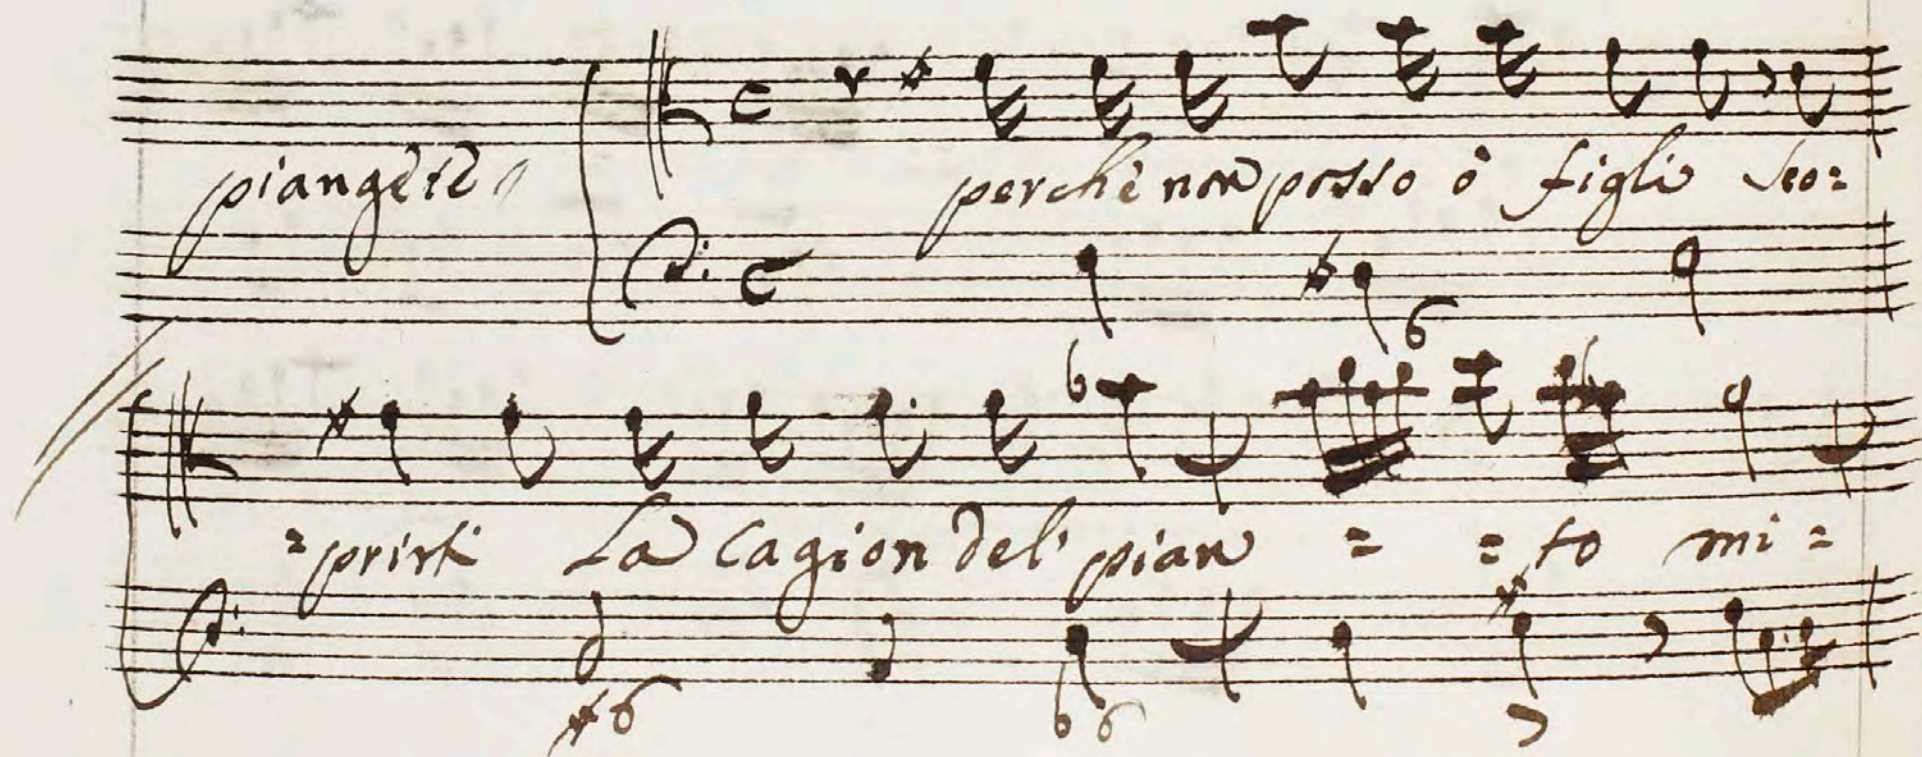 piangete perche non posso ò figli sco=
=prirti La cagion del' pian = = to mi =